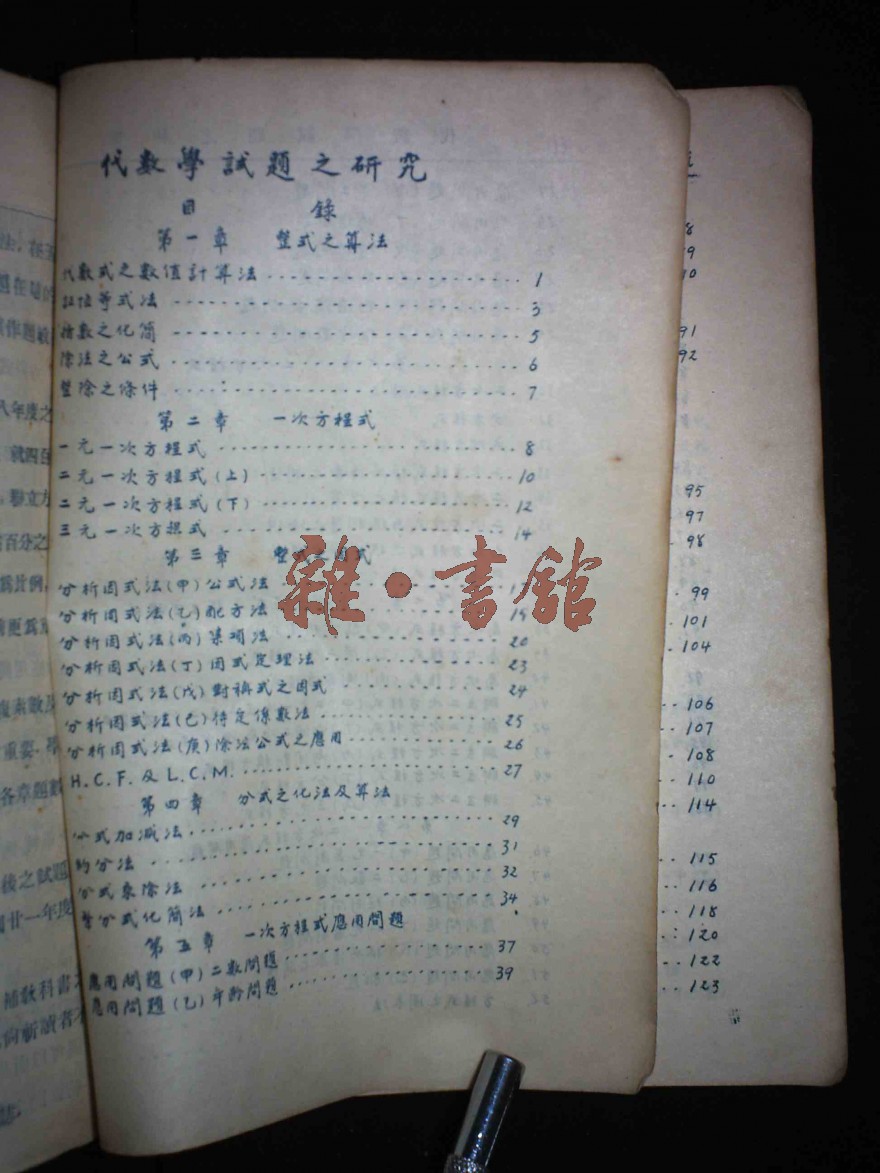 代數學試題之研究
目 錄
第一章 整式之算法
代數式之數值計算法 1
証恆等式法 3
指數之化簡 5
除法之公式 6
整除之條件 7
第二章 一次方程式
一元一次方程式 8
二元一次方程式(上) 10
二元一次方程式(下) 12
三元一次方程式 14
第三章 整式之因式
分析因式法(甲)公式法
分析因式法(乙)配方法 19
分析因式法(丙)集項法 20
分析因式法(丁)因式定理法 23
分析因式法(戊)對稱式之因式 24
分析因式法(己)待定係數法 25
分析因式法(庚)除法公式之應用 26
H.C.F.及L.C.M. 27
第四章 分式之化法及算法
分式加減法 29
約分法 31
分式乘除法 32
繁分式化簡法 34
第五章 一次方程式應用問題
應用問題(甲)二數問題 37
應用問題(乙)年齡問題 39
雜·書館
91
92
95
97
98
99
101
104
106
107
108
110
114
115
116
118
120
122
123
八年度之
就四百
聯立方
百分之
為比例
各章題數
後之試題
廿一年度
補教科書